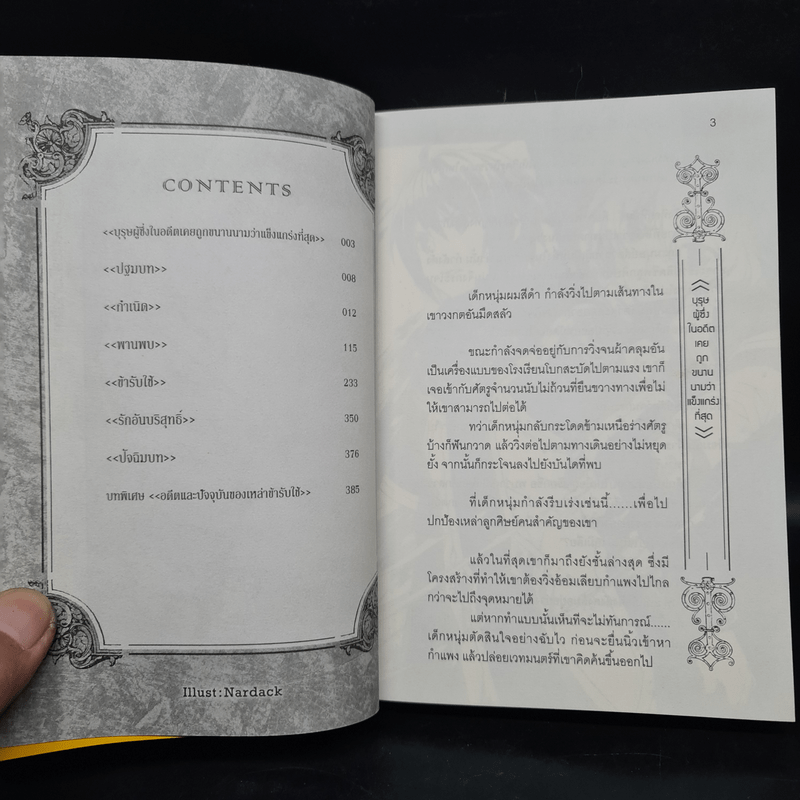 CONTENTS
<<บุรุษผู้ซึ่งในอดีตเคยถูกขนานนามว่าแข็งแกร่งที่สุด>> 003
<<ปฐมบท>> 008
<<กำเนิด>> 012
<<พานพบ>> 115
<<ข้ารับใช้>> 233
<<รักอันบริสุทธิ์>> 350
<<ปัจฉิมบท>> 376
บทพิเศษ <<อดีตและปัจจุบันของเหล่าข้ารับใช้>> 385
Illust:Nardack
3
เด็กหนุ่มผมสีดำ กำลังวิ่งไปตามเส้นทางใน
เขาวงกตอันมืดสลัว
ขณะกำลังจดจ่ออยู่กับการวิ่งจนผ้าคลุมอัน
เป็นเครื่องแบบของโรงเรียนโบกสะบัดไปตามแรง เขาก็
เจอเข้ากับศัตรูจำนวนนับไม่ถ้วนที่ยืนขวางทางเพื่อไม่
ให้เขาสามารถไปต่อได้
ทว่าเด็กหนุ่มกลับกระโดดข้ามเหนือร่างศัตรู
บ้างก็ฟันกวาด แล้ววิ่งต่อไปตามทางเดินอย่างไม่หยุด
ยั้ง จากนั้นก็กระโจนลงไปยังบันไดที่พบ
ที่เด็กหนุ่มกำลังรีบเร่งเช่นนี้......เพื่อไป
ปกป้องเหล่าลูกศิษย์คนสำคัญของเขา
แล้วในที่สุดเขาก็มาถึงยังชั้นล่างสุด ซึ่งมี
โครงสร้างที่ทำให้เขาต้องวิ่งอ้อมเลียบกำแพงไปไกล
กว่าจะไปถึงจุดหมายได้
แต่หากทำแบบนั้นเห็นทีจะไม่ทันการณ์......
เด็กหนุ่มตัดสินใจอย่างฉับไว ก่อนจะยื่นนิ้วเข้าหา
กำแพง แล้วปล่อยเวทมนตร์ที่เขาคิดค้นขึ้นออกไป
<<
บุรุษ
ผู้ซึ่ง
ในอดีต
เคย
ถูก
ขนาน
นามว่า
แข็งแกร่ง
ที่สุด
>>